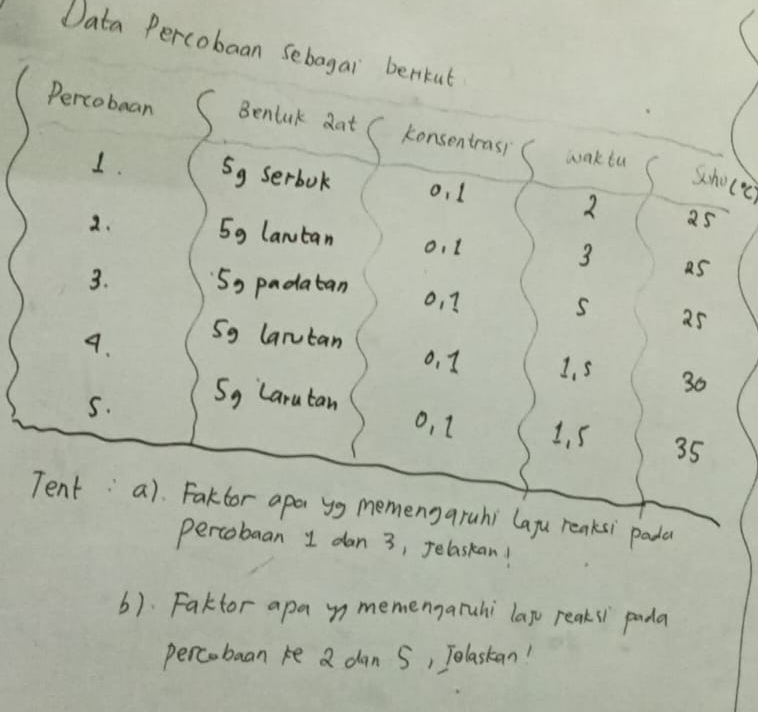 Data Percobaan sebagai berikut
Percobaan Bentuk Zat Konsentrasi waktu Suhu (°C)
1. 5g serbuk 0,1 2 25
2. 5g larutan 0,1 3 25
3. 5g padatan 0,1 5 25
4. 5g larutan 0,1 1,5 30
5. 5g Larutan 0,1 1,5 35
Tent : a). Faktor apa yg memengaruhi laju reaksi pada
percobaan 1 dan 3, Jelaskan!
b). Faktor apa yg memengaruhi laju reaksi pada
percobaan ke 2 dan 5, Jelaskan!